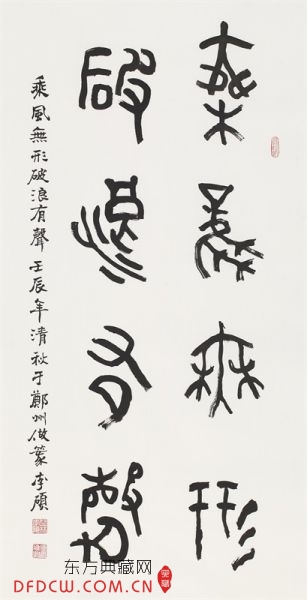 乘風無形
破浪有聲
乘風無形破浪有聲 壬辰年清秋于鄭州做篆 李碩
东方典藏网
DFDCW.COM.CN